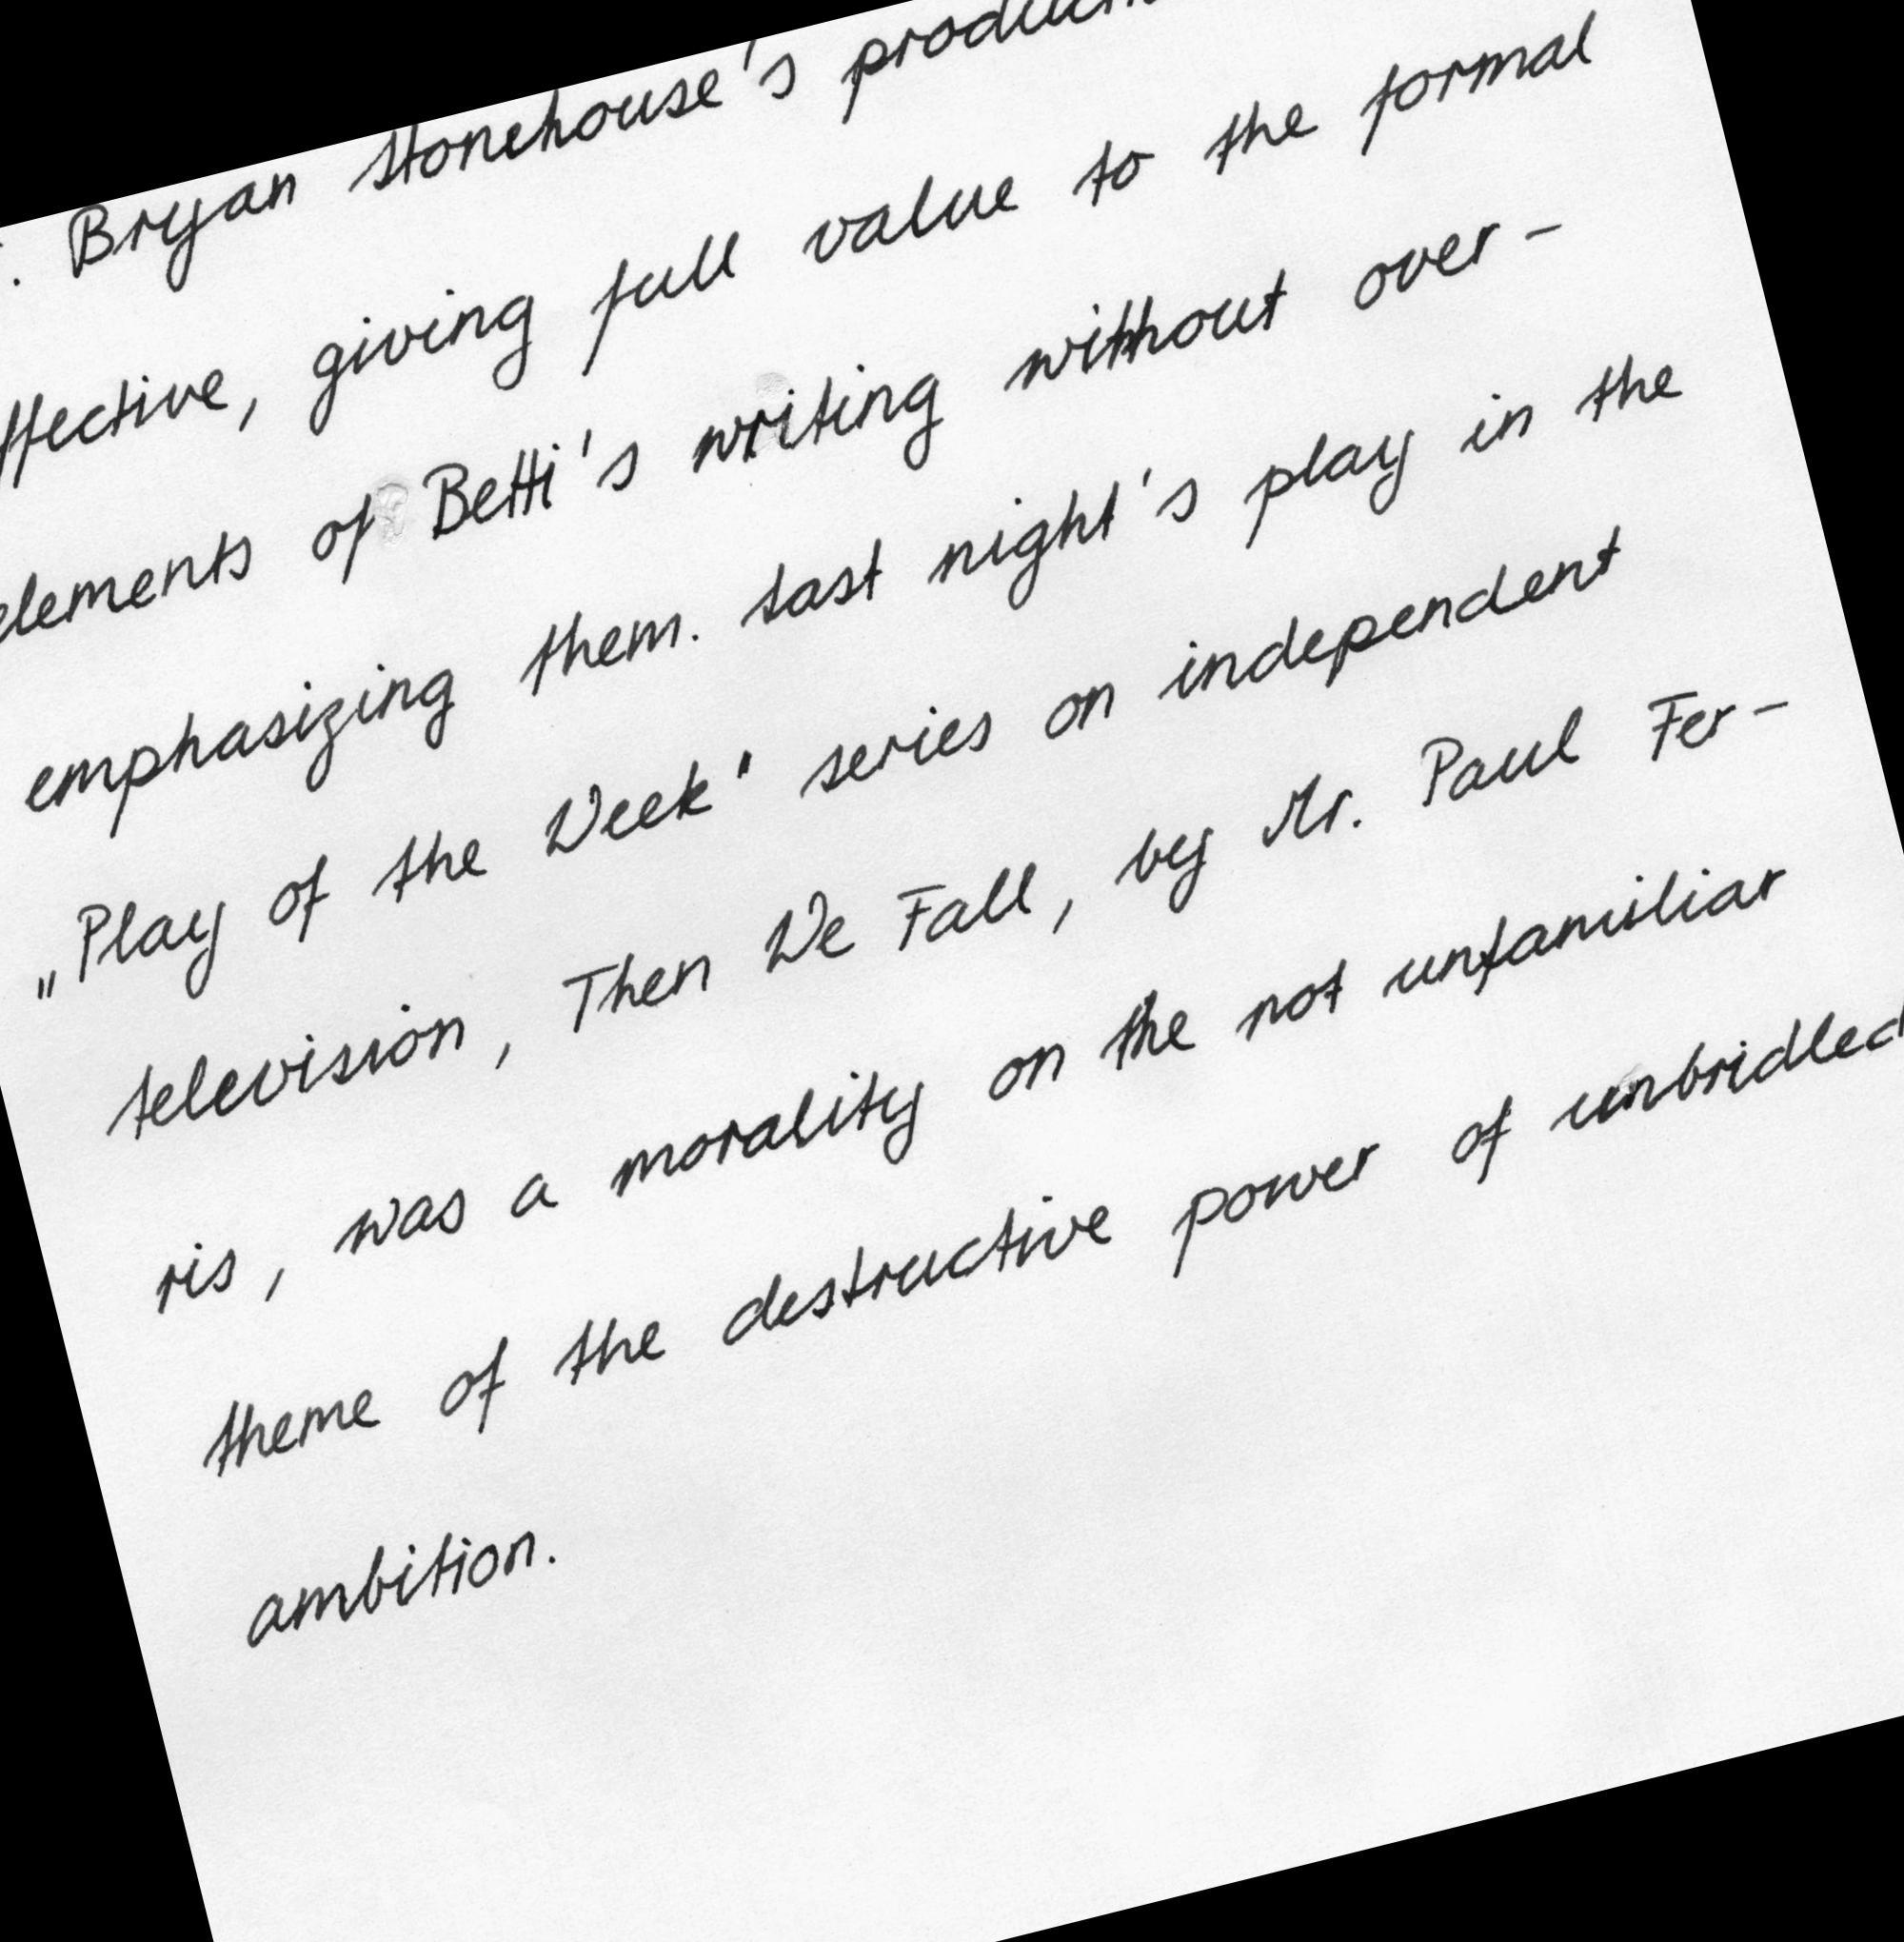 . Bryan Stonehouse's
effective, giving full value to the formal
elements of Betti's writing without over-
emphasizing them. Last night's play in the
„Play of the Week" series on independent
television, Then We Fall, by Mr. Paul Fer-
ris, was a morality on the not unfamiliar
theme of the destructive power of unbridled
ambition.